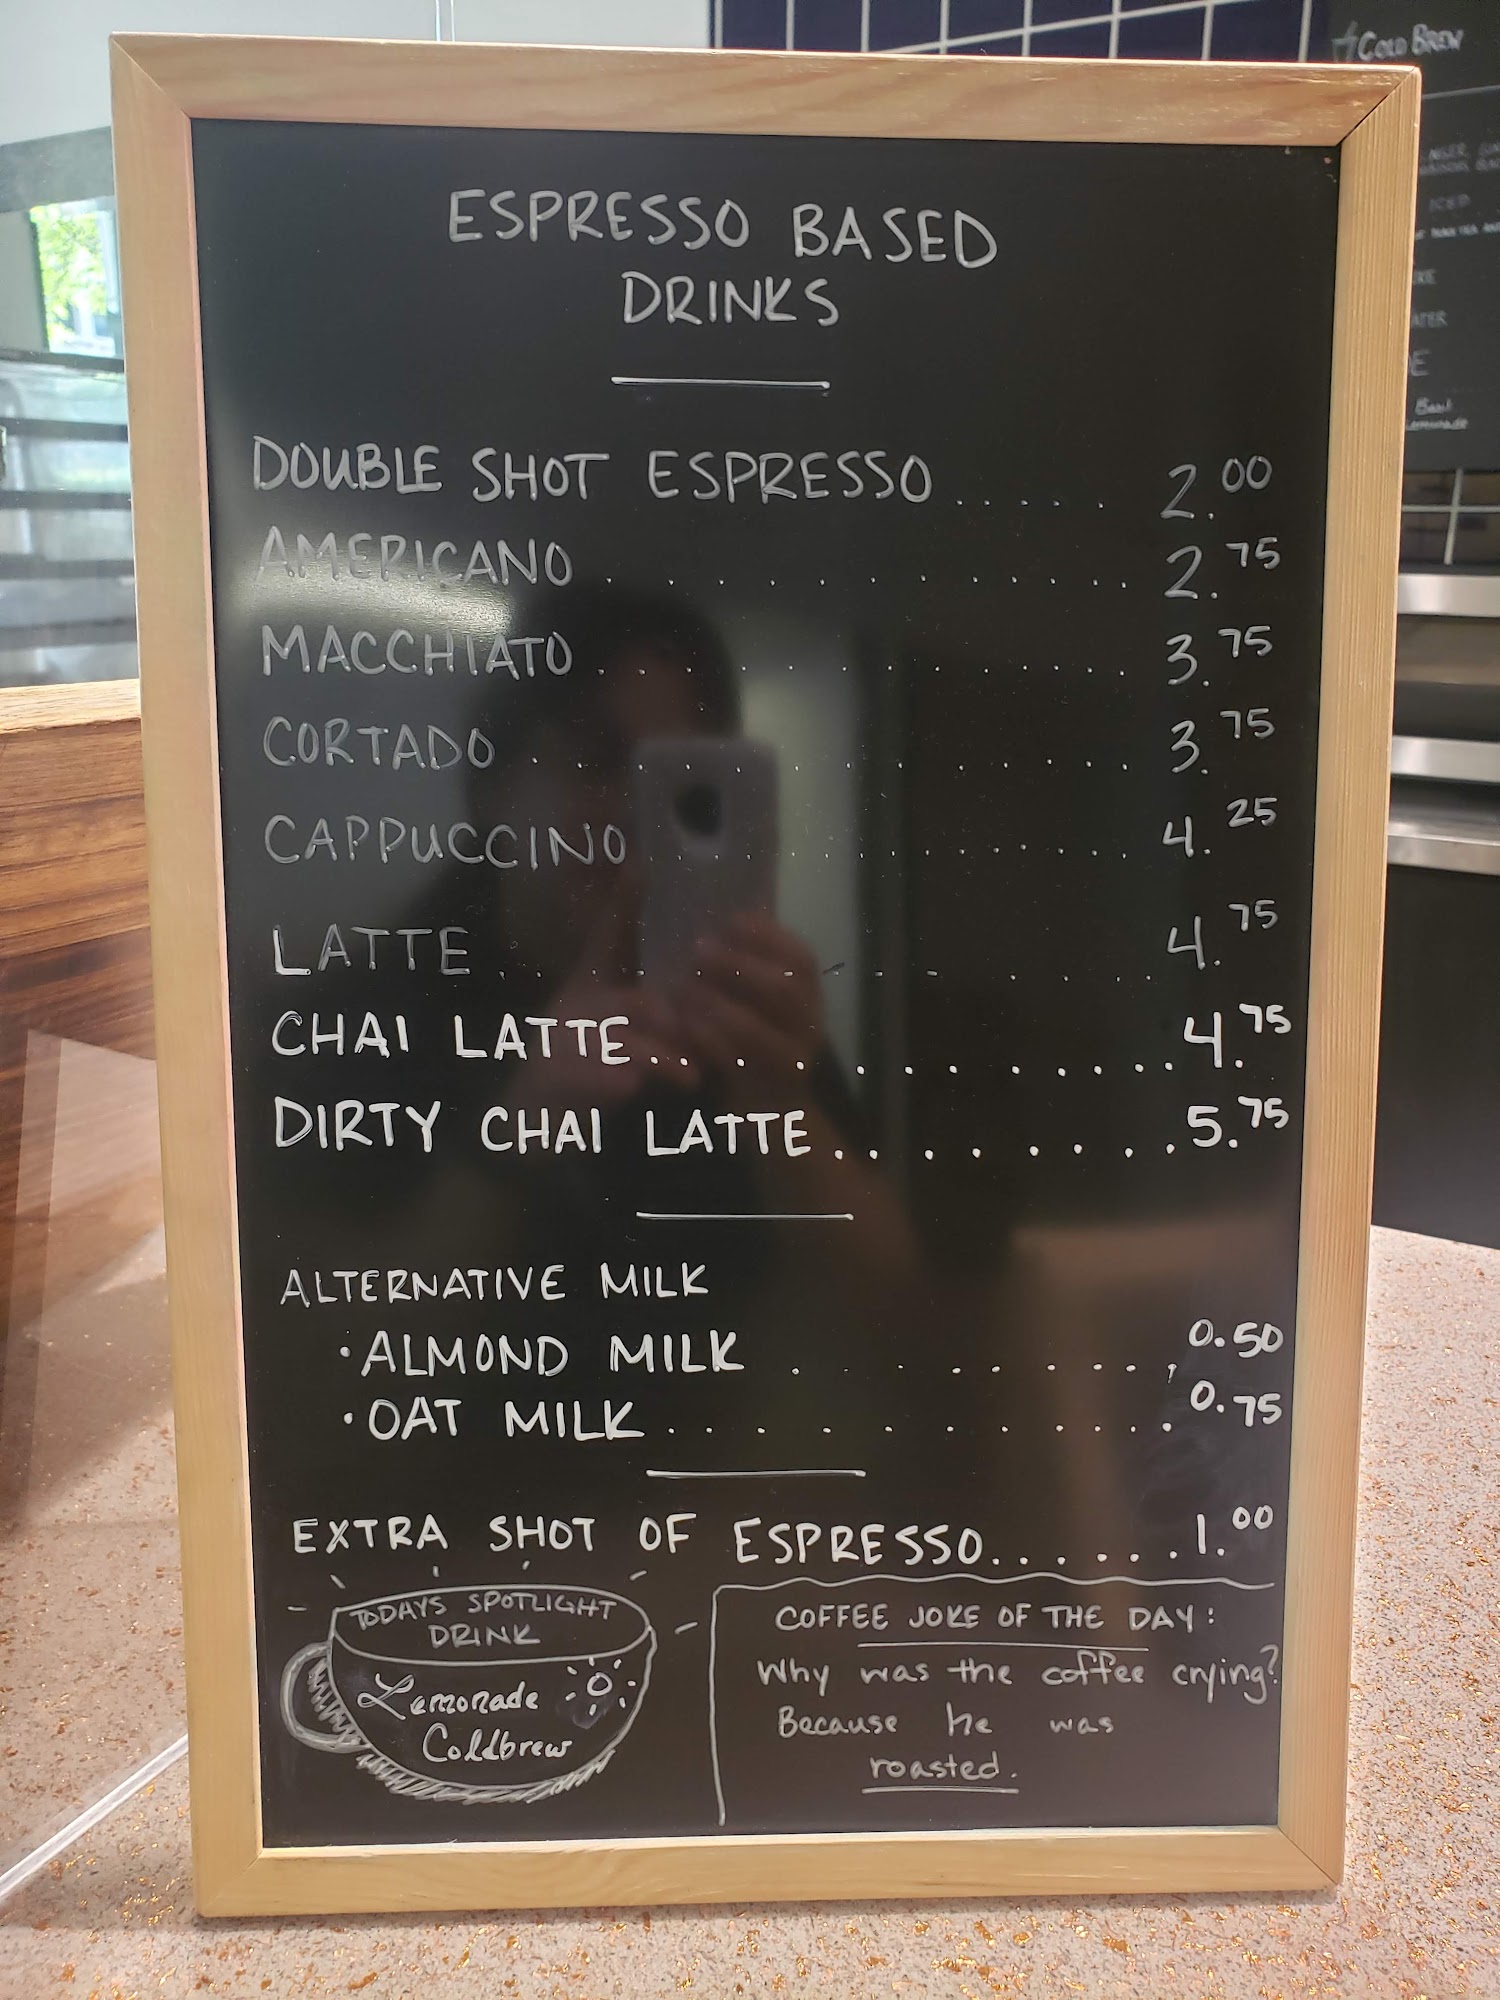 ESPRESSO BASED
DRINKS
DOUBLE SHOT ESPRESSO..... 2.00
AMERICANO............ 2.75
MACCHIATO............ 3.75
CORTADO............ 3.75
CAPPUCCINO............ 4.25
LATTE............ 4.75
CHAI LATTE............ 4.75
DIRTY CHAI LATTE........ 5.75
ALTERNATIVE MILK
·ALMOND MILK........ 0.50
·OAT MILK......... 0.75
EXTRA SHOT OF ESPRESSO......1.00
TODAYS SPOTLIGHT
DRINK
Lemonade
Coldbrew
COFFEE JOKE OF THE DAY:
Why was the coffee crying?
Because he was
roasted.
COLD BREW
ICED
Basil